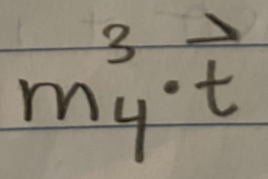 m₄³·t⃗